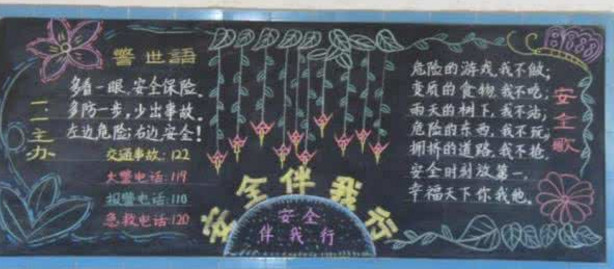 警世語
多看一眼,安全保险。
多防一步,少出事故。
左边危险,右边安全!
交通事故:122
火警电话:119
报警电话:110
急救电话:120
一一主办
安全伴我行
安全
伴我行
安全歌
危险的游戏我不做;
变质的食物,我不吃;
雨天的树下,我不站;
危险的东西,我不玩;
拥挤的道路,我不抢。
安全时刻放第一,
幸福天下你我他。